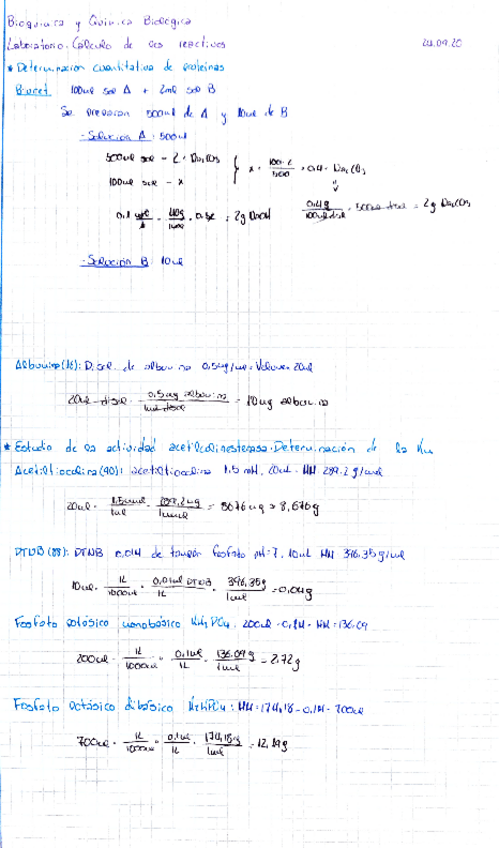 Bioquímica y Química Biológica
Laboratorio. Cálculo de los reactivos 24.09.20
* Determinación cuantitativa de proteínas
Biuret 100ml sol A + 2ml sol B
Se preparan 500ml de A y 10ml de B
- Solución A: 500ml
500ml sol - 2 · Na₂CO₃
100ml sol - x
x = 100·2/500 = 0.4 · Na₂CO₃
0.1 mol/L · 40g/1mol · 0.5L = 2g NaOH
0.4g/100ml disol · 500ml disol = 2g Na₂CO₃
- Solución B: 10ml
Albúmina(16): Disol. de albúmina 0.5mg/ml · Volumen 20ml
20ml disol · 0.5mg albúmina/1ml disol = 10mg albúmina
* Estudio de la actividad acetilcolinesterasa. Determinación de la Km
Acetiltiocolina(90): acetiltiocolina 1.5 mM. 20ml · MM 289.2 g/mol
20ml · 1.5mmol/1ml · 289.2mg/1mmol = 8676mg = 8,676g
DTNB(88): DTNB 0.01M de tampón fosfato pH=7. 10ml MM 396.35g/mol
10ml · 1L/1000ml · 0.01mol DTNB/1L · 396,35g/1mol = 0,04g
Fosfato potásico monobásico KH₂PO₄. 200ml - 0.1M - MM=136.09
200ml · 1L/1000ml · 0.1mol/1L · 136.09g/1mol = 2.72g
Fosfato potásico dibásico K₂HPO₄: MM=174,18 - 0.1M - 700ml
700ml · 1L/1000ml · 0.1mol/1L · 174,18g/1mol = 12,19g